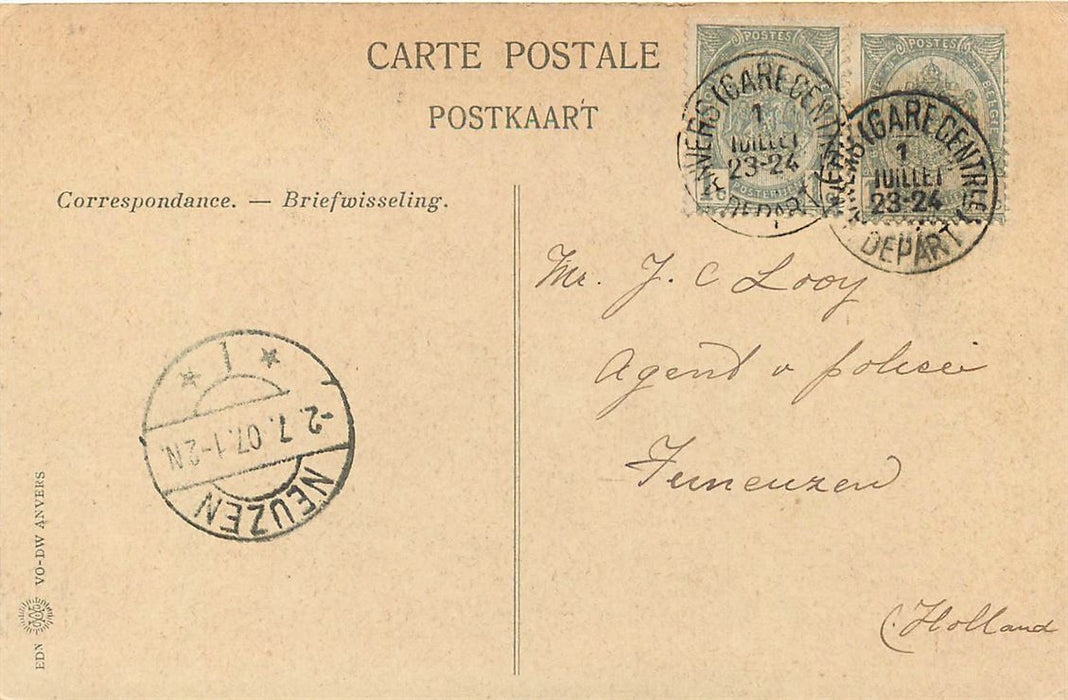 CARTE POSTALE
POSTKAART
Correspondance. — Briefwisseling.
POSTES
POSTES
ANVERS (GARE CENTRALE)
1
JUILLET
23-24
DEPART
ANVERS (GARE CENTRALE)
1
JUILLET
23-24
DEPART
Mr. J. C Looy
Agent v polisei
Terneuzen
(Holland
-2.7.07.1-2N.
NEUZEN
EDN VO-DW ANVERS